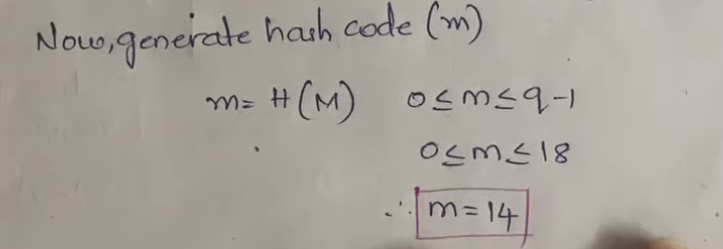 Now, generate hash code (m)
m = H(M) 0 ≤ m ≤ q-1
0 ≤ m ≤ 18
∴ m = 14